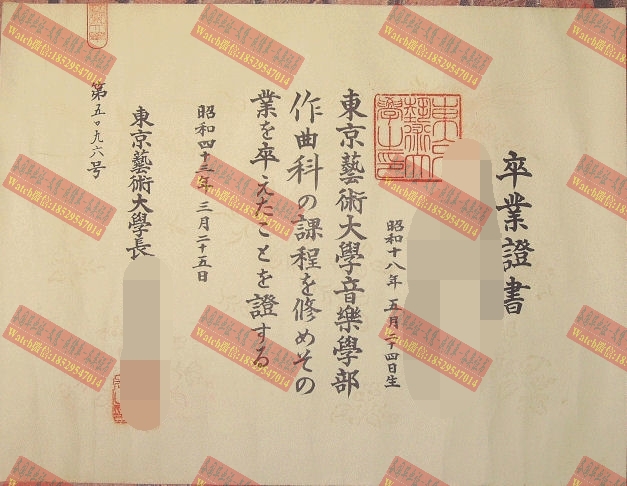 卒業證書
昭和十八年五月二十四日生
東京藝術大學音樂學部
作曲科の課程を修めその
業を卒えたことを證する
昭和四十三年三月二十五日
東京藝術大學長
第五〇九六号
Watch微信:18529547014
Watch微信:18529547014
Watch微信:18529547014
Watch微信:18529547014
Watch微信:18529547014
Watch微信:18529547014
Watch微信:18529547014
Watch微信:18529547014
Watch微信:18529547014